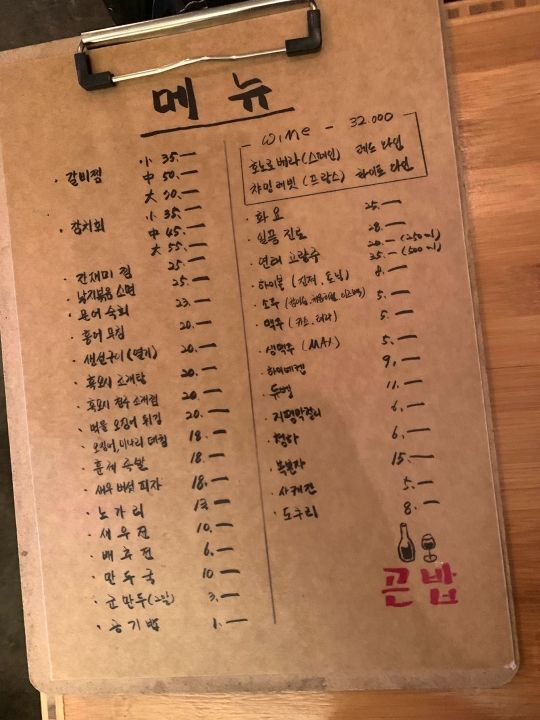 메뉴
· 갈비찜 小 35.—
中 50.—
大 70.—
· 참치회 小 35.—
中 45.—
大 55.—
· 간재미 찜 25.—
· 낙지볶음 소면 25.—
· 문어 숙회 23.—
· 홍어 무침 20.—
· 생선구이 (열기) 20.—
· 흑모시 조개탕 20.—
· 흑모시 조개찜 20.—
· 해물 오징어 튀김 20.—
· 오징어, 미나리 데침 18.—
· 훈제 족발 18.—
· 새우 버섯 피자 18.—
· 노가리 13.—
· 새우전 10.—
· 배추전 6.—
· 만두국 10.—
· 군만두 3.—
· 공기밥 1.—
wine - 32.000
호노로 베라 (스페인) 레드 와인
샤밍 레빗 (프랑스) 화이트 와인
· 화요 25.—
· 일품 진로 28.—
· 연태 고량주 20.— (250ml)
35.— (500ml)
· 하이볼 (진저, 토닉) 8.—
· 소주 5.—
· 맥주 (카스, 테라) 5.—
· 생맥주 (MAX) 5.—
· 하이네켄 9.—
· 듀벨 11.—
· 지평막걸리 6.—
· 청하 6.—
· 복분자 15.—
· 사케잔 5.—
· 도수리 8.—
곤밥